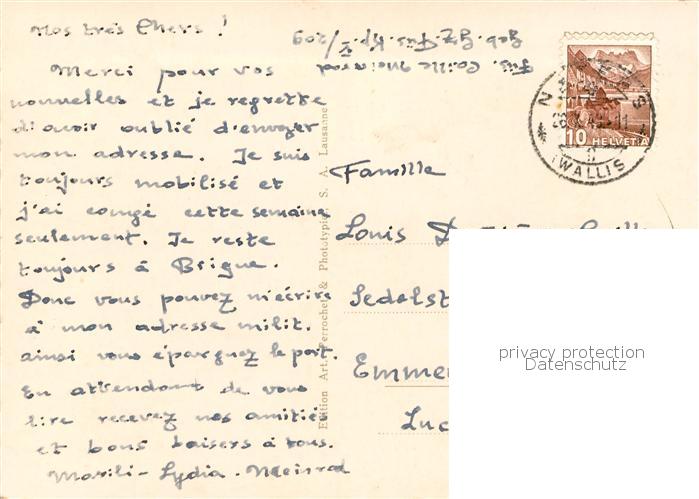 Mos très Chers !
Merci pour vos
nouvelles et je regrette
d'avoir oublié d'envoyer
mon adresse. Je suis
toujours mobilisé et
j'ai congé cette semaine
seulement. Je reste
toujours à Brigue.
Donc vous pouvez m'écrire
à mon adresse milit.
ainsi vous éparguez le port.
En attendant de vous
lire recevez nos amitiés
et bons baisers à tous.
Marili - Lydia - Meinrad
Füs. Meinrad
Geb. Füs. Kp. 209
Edition Art. Perrochet & Phototypie S. A. Lausanne
10 HELVETIA
(WALLIS)
Famille
Louis
Sedelst
Emme
Luc
privacy protection
Datenschutz